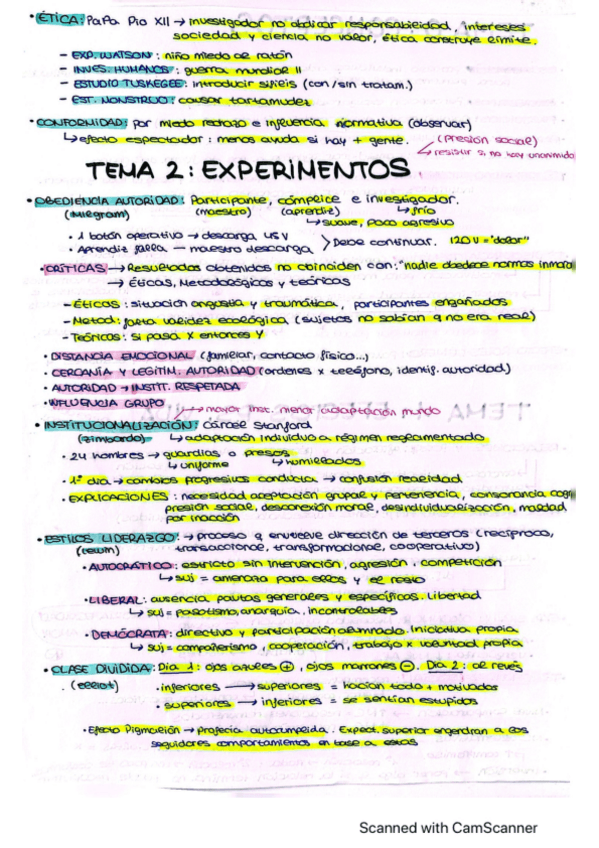 · ÉTICA: PaPa Pio XII → investigador no abdicar responsabilidad, intereses
sociedad y ciencia no valor, ética construye límite.
– EXP. WATSON: niño miedo al ratón
– INVES. HUMANOS: guerra mundial II
– ESTUDIO TUSKEGEE: introducir sífilis (con/sin tratam.)
– EST. MONSTRUO: causar tartamudez
· CONFORMIDAD: por miedo rechazo e influencia normativa (observar)
↳ efecto espectador: menos ayuda si hay + gente. (presión social)
resistir si no hay unanimida
TEMA 2: EXPERIMENTOS
· OBEDIENCIA AUTORIDAD: Participante, cómplice e investigador.
(Milegram) (maestro) (aprendiz) ↳ frío
↳ suave, poco agresivo
· 1 botón operativo → descarga 45V
· Aprendiz falla — maestro descarga > Debe continuar. 120V = "dolor"
· CRÍTICAS → Resultados obtenidos no coinciden con: "nadie obedece normas inmoral
→ Éticas, Metodológicas y teóricas
– Éticas: situación angustia y traumática, participantes engañados
– Metod: falta validez ecológica (sujetos no sabían q no era real)
– Teóricas: si pasa X entonces Y
· DISTANCIA EMOCIONAL (familiar, contacto físico...)
· CERCANÍA Y LEGITIM. AUTORIDAD (ordenes x teléfono, identif. autoridad)
· AUTORIDAD → INSTIT. RESPETADA
· INFLUENCIA GRUPO
→ mayor inst. menor adaptación mundo
· INSTITUCIONALIZACIÓN: cárcel Stanford
(Zimbardo) ↳ adaptación individuo a régimen reglamentado
· 24 hombres → guardias o presos
↳ uniforme ↳ humillados
· 1º día → cambios progresivos conducta → confusión realidad
· EXPLICACIONES: necesidad aceptación grupal y pertenencia, consonancia cogni
presión social, desconexión moral, desindividualización, maldad
por inacción
· ESTILOS LIDERAZGO: → proceso q envuelve dirección de terceros (recíproco,
(Lewin) transaccional, transformacional, cooperativo)
· AUTOCRÁTICO: estricto sin intervención, agresión, competición
↳ suj = amenaza para ellos y el resto
· LIBERAL: ausencia pautas generales y específicas. Libertad
↳ suj = pasotismo, anarquía, incontrolables
· DEMÓCRATA: directivo y participación alumnado. Iniciativa propia
↳ suj = compañerismo, cooperación, trabajo x voluntad propia
· CLASE DIVIDIDA: Día 1: ojos azules +, ojos marrones –. Día 2: al revés
(elliot) · inferiores → superiores = hacían todo + motivados
· superiores → inferiores = se sentían estúpidos
· Efecto Pigmalión → profecía autocumplida. Expect. superior engendran a los
seguidores comportamientos en base a estas
Scanned with CamScanner